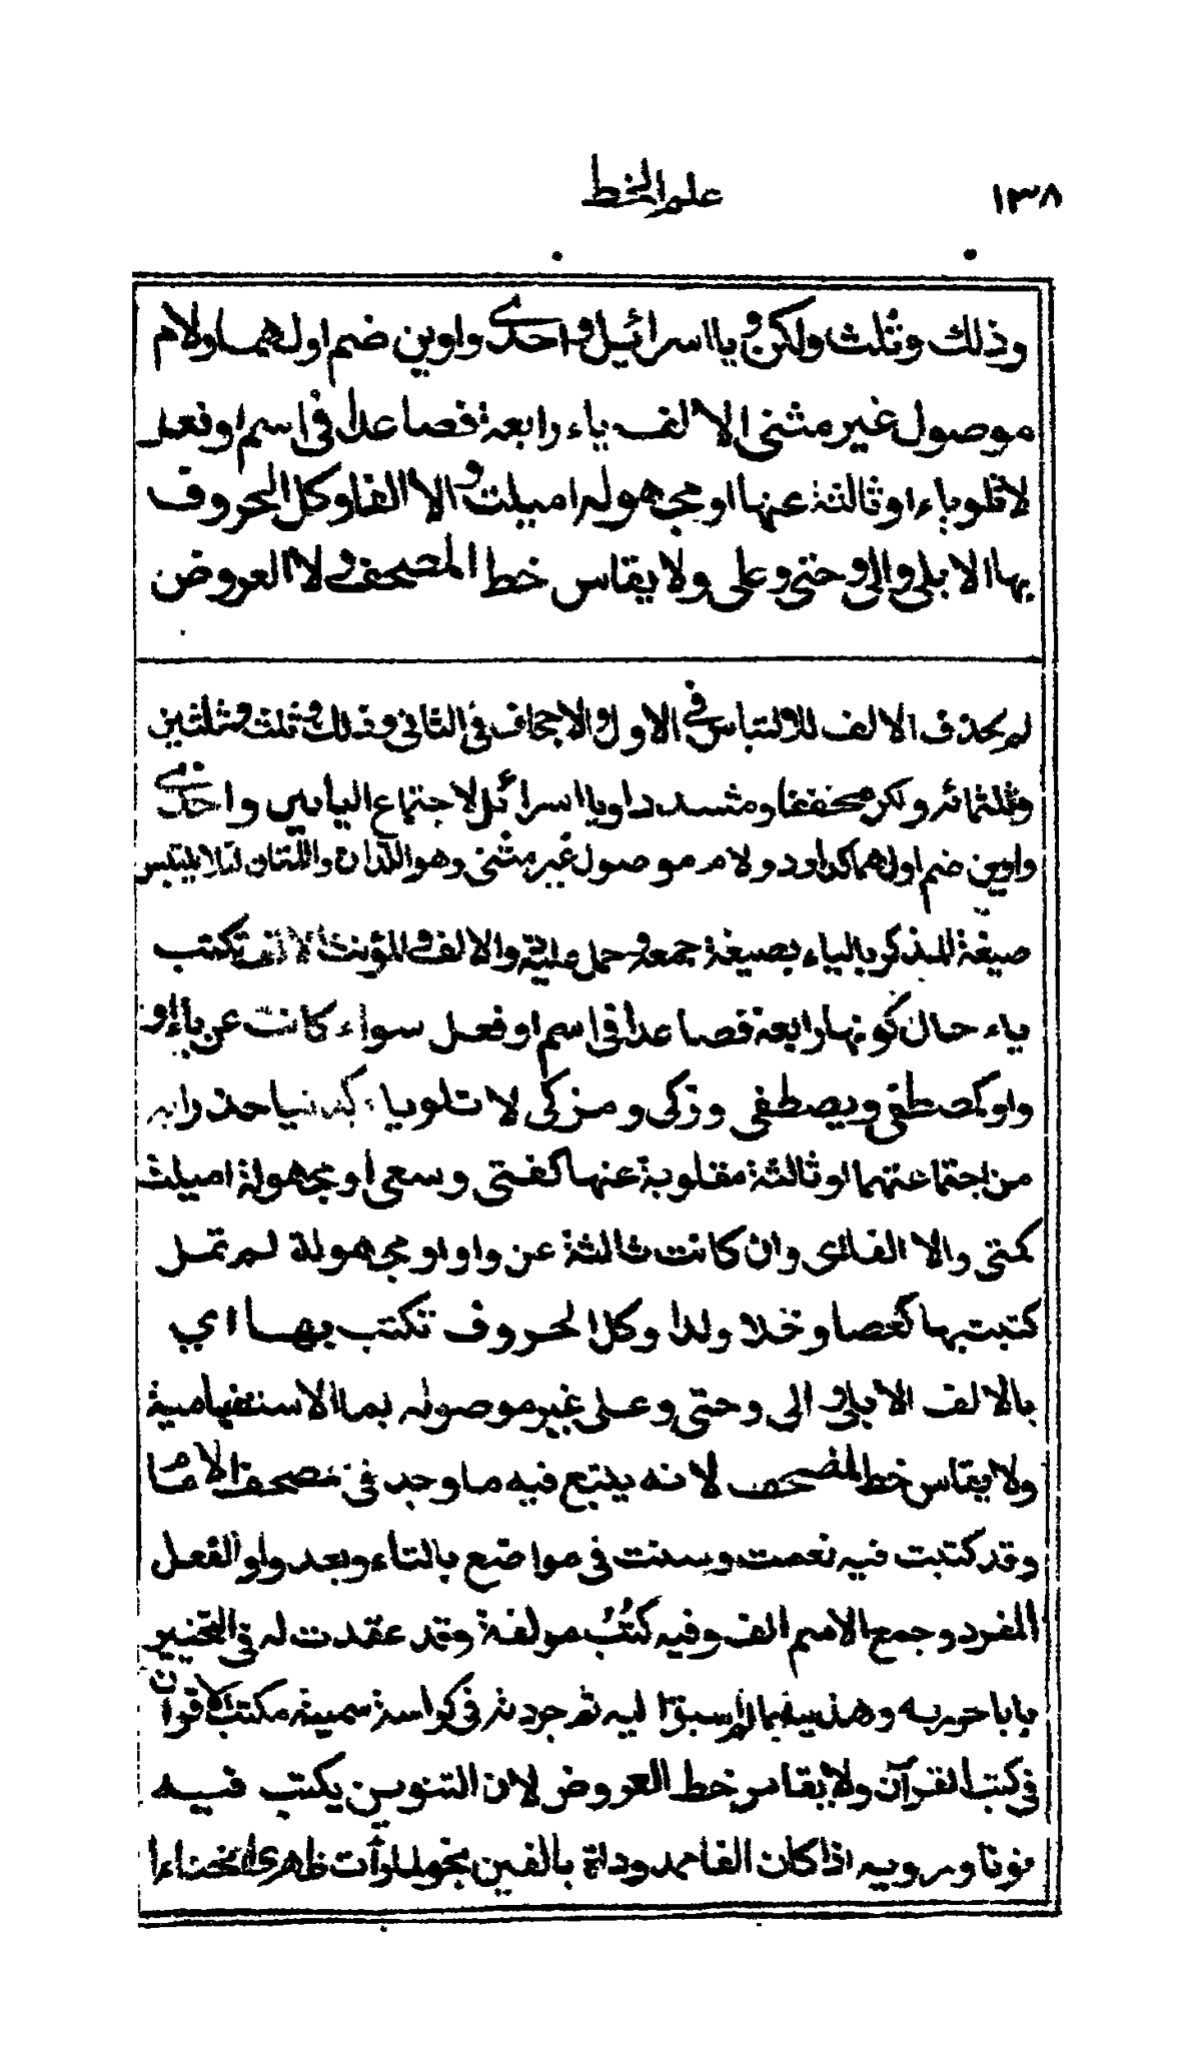 ١٣٨ علم الخط
وذلك وثلث ولكن ويا اسرائيل واحدى واوين ضم اولهما ولام
موصول غير مثنى الالف ياء رابعة فصاعدا في اسم او فعل
لا تلو ياء او ثالثة عنها او مجهولة اميلت والا الفا وكل الحروف
بها الا بلى والى وحتى وعلى ولا يقاس خط المصحف ولا العروض
لم يحذف الالف للالتباس في الاول والاجحاف في الثاني وذلك وثلث وثلثين
وثلثمائة ولكن مخففا ومشددا ويا اسرائل لاجتماع اليايين واحدى
واوين ضم اولهما كداود ولام موصول غير مثنى وهو اللذان واللتان لئلا يلتبس
صيغة المذكر بالياء بصيغة جمعه وحمل عليه والالف والمؤنث الالف تكتب
ياء حال كونها رابعة فصاعدا في اسم او فعل سواء كانت عن ياء او
واو كمصطفى ويصطفى وزكى ومزكى لا تلو ياء كدنيا حذرا به
من اجتماعهما او ثالثة مقلوبة عنها كفتى وسعى او مجهولة اميلت
كمتى والا الفا اى وان كانت ثالثة عن واو او مجهولة لم تمل
كتبت بها كعصا وخلا ولدا وكل الحروف تكتب بها اي
بالالف الا بلى والى وحتى وعلى غير موصولة بما الاستفهامية
ولا يقاس خط المصحف لانه يتبع فيه ما وجد في مصحف الامام
وقد كتبت فيه نعمت وسنت في مواضع بالتاء وبعد واو الفعل
المفرد وجمع الاسم الف وفيه كتب مولفة وقد عقدت له في التحبير
بابا حررته وهذبته بما لم اسبق اليه ثم جردته في كراسة سميته مكتب الاقران
في كتب القرآن ولا يقاس خط العروض لان التنوين يكتب فيه
نونا ورويه اذا كان الفا ممدودا بالفين نحو لما رأت ظهرى انحناءا